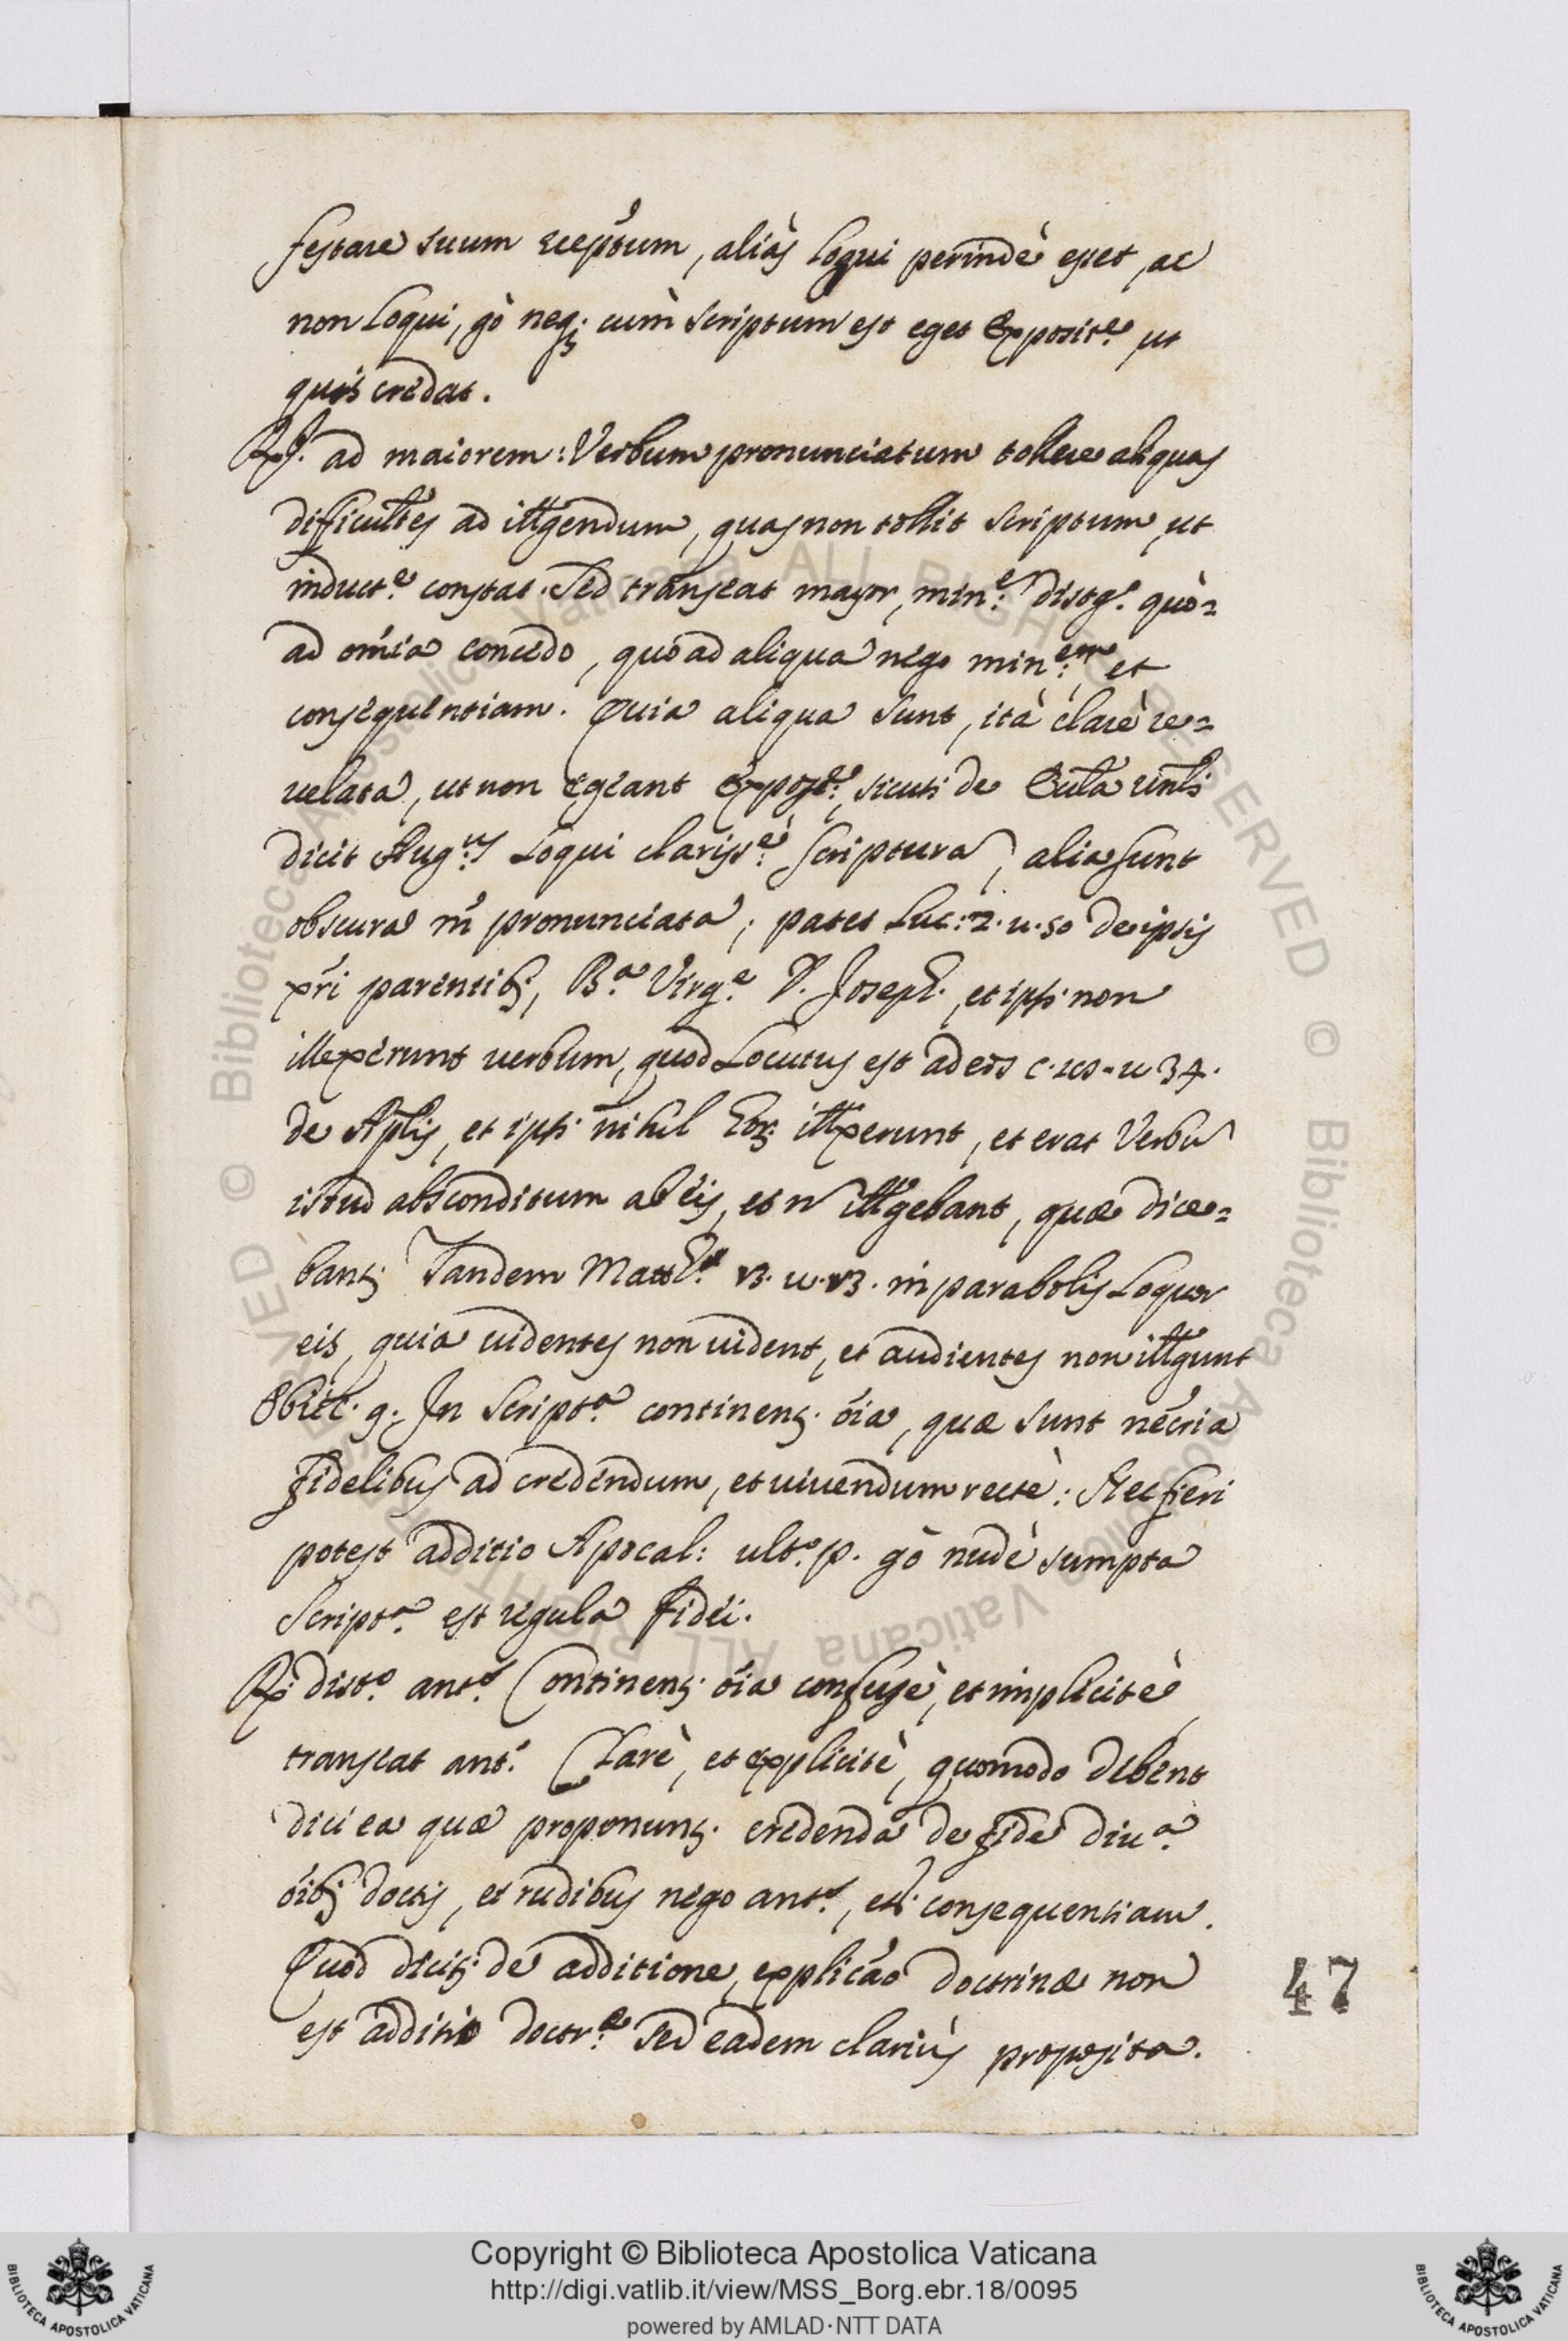 festare suum ɔceptũm, aliàs loqui perindè esset, ac
non loqui, gò neq; cum scriptum est eget Exposit.e ut
quis credat.
Rp. ad maiorem: Verbum pronunciatum tollere aliquas
difficultẽs ad ittgendum, quas non tollit scriptum, ut
induct.e constat. Sed transeat mayor, min.e distg.o quò=
ad om̃ia concedo, quo ad aliqua nego min.em et
consequentiam. Quia aliqua sunt, ità clarè re=
uelata, ut non egeant Expost.e, sicuti de Ecĩla
dicit Aug.us loqui clariss.è scriptura, alia sunt
obscura m̃ pronunciata; patet Luc: 2. u. 50 de ipsis
xp̃i parentib; B.a Virg.e S. Joseph. et ipsi non
illexerunt uerbum, quod locutus est ad eos c. 18. u 34.
de Ap̃lis, et ipsi nihil hor; ittxerunt, et erat Verbũ
istud absconditum ab eis, et ñ ittgebant, quæ dice=
bant; Tandem Matth. 13. u. 13. in parabolis loquor
eis, quia uidentes non uident, et audientes non ittgunt
Obiic. 9. In script.a continent; õia, quæ sunt nec̃ria
fidelibus ad credendum, et uiuendum rectè: Nec fieri
potest additio Apocal: ult.o p. gò nudè sumpta
Script.a est regula fidei.
Rp. dist.o ant.s Continent; õia confusè, et implicitè,
transeat ant.s Clarè, et explicitè, quomodo debent
dici ea quæ proponunt; credenda de fide diu.a
õib; doctis, et rudibus nego ant.s, et consequentiam.
Quod dicit; de additione, explicão doctrinæ non
est additio doctr.æ sed eadem clariùs proposita.
47
© Biblioteca Apostolica Vaticana ALL RIGHTS RESERVED © Biblioteca Apostolica Vaticana ALL RIGHTS RESERVED
BIBLIOTECA APOSTOLICA VATICANA
Copyright © Biblioteca Apostolica Vaticana
http://digi.vatlib.it/view/MSS_Borg.ebr.18/0095
powered by AMLAD·NTT DATA
BIBLIOTECA APOSTOLICA VATICANA